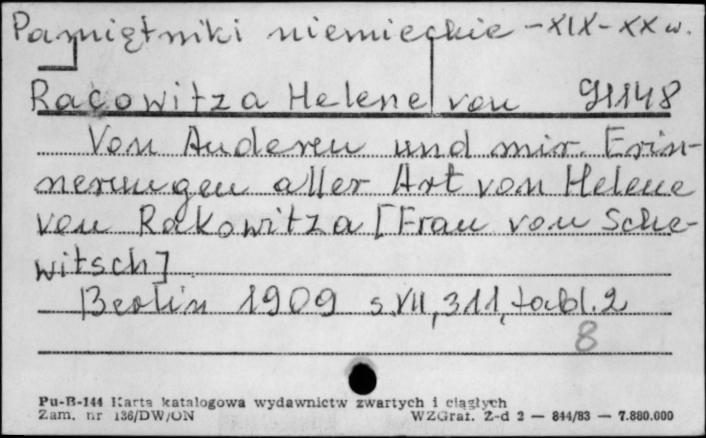 Pamiętniki niemieckie - XIX - XX w.
Racowitza Helene von 91148
Von Anderen und mir. Erin-
nerungen aller Art von Helene
von Rakowitza [Frau von Sche-
witsch]
Berlin 1909 s. VII, 311, tabl. 2
8
Pu-B-144 Karta katalogowa wydawnictw zwartych i ciągłych
Zam. nr 136/DW/ON WZGraf. Z-d 2 — 844/83 — 7.880.000